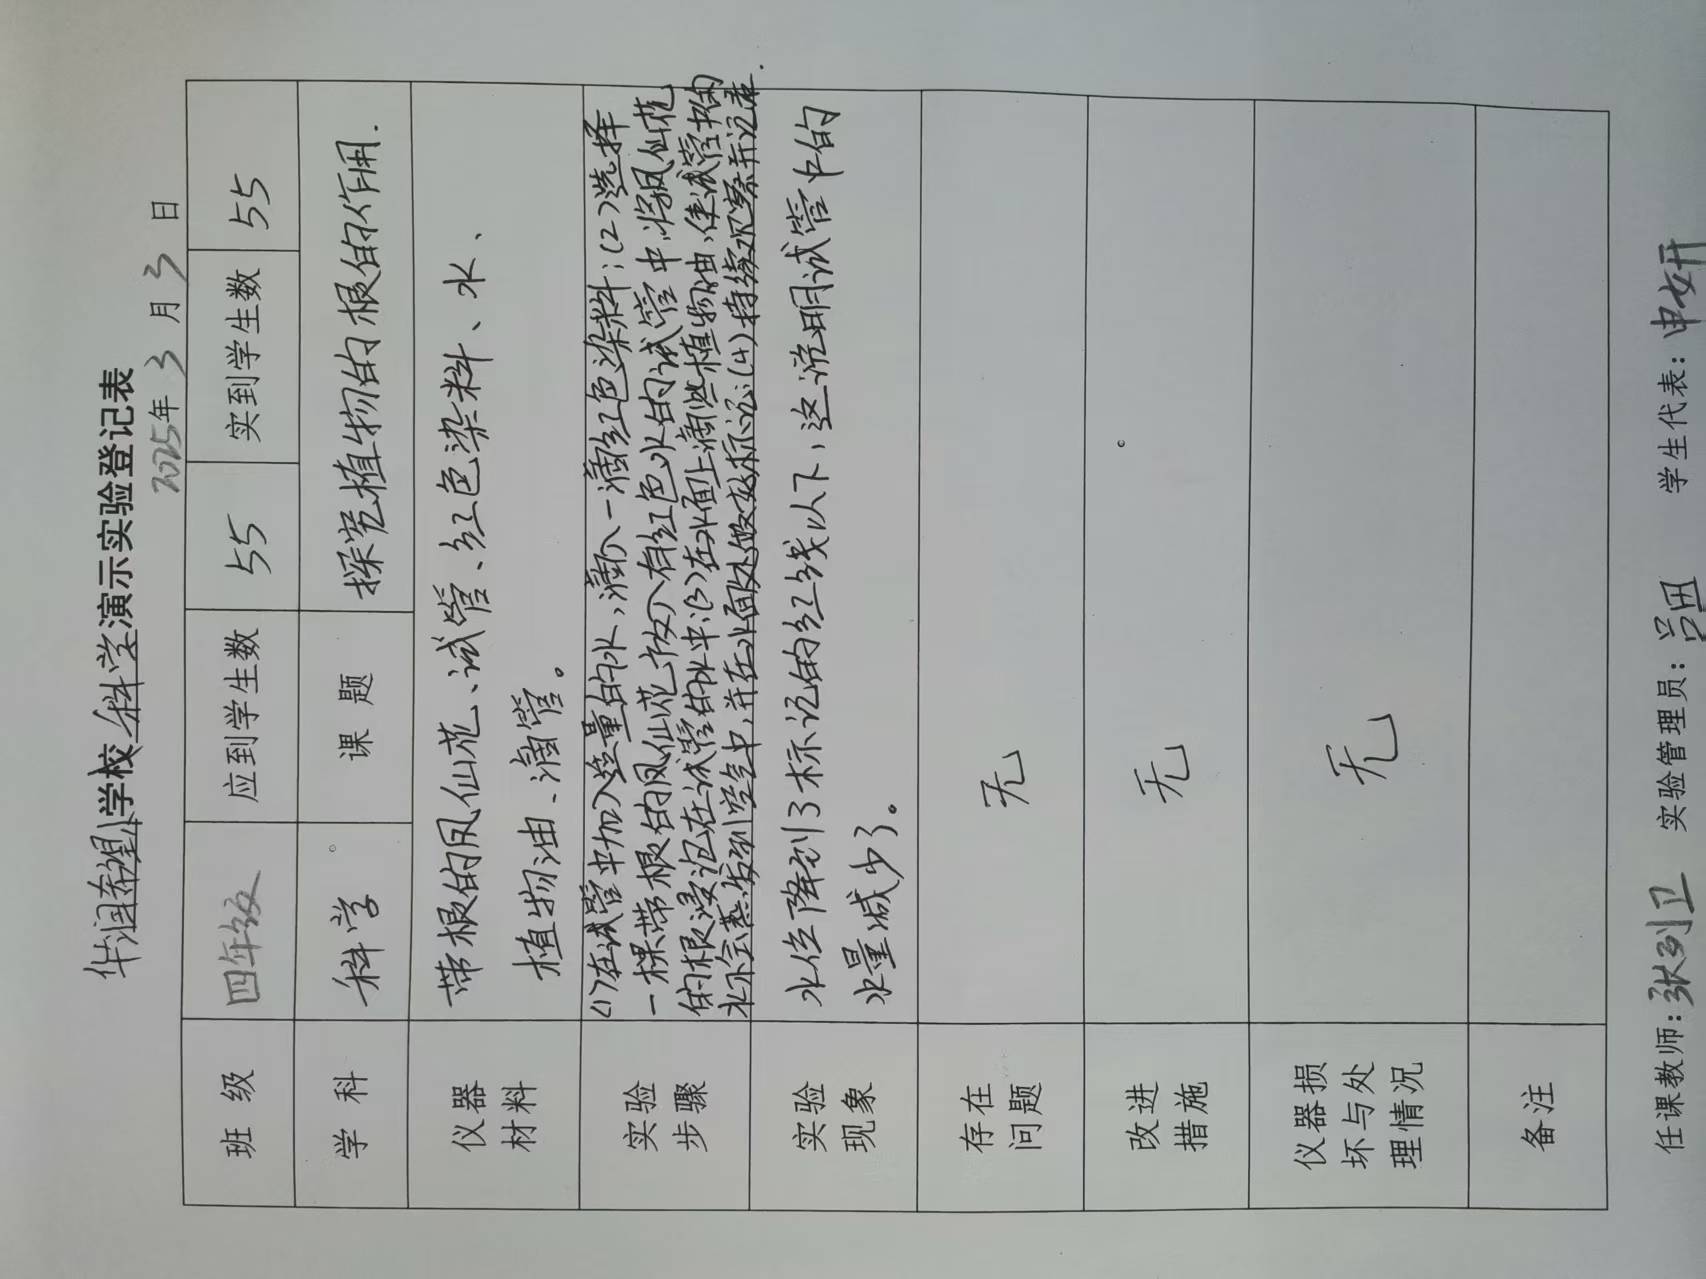 华润希望小学校科学演示实验登记表
2025年3月3日
班级 四年级 应到学生数 55 实到学生数 55
学科 科学 课题 探究植物的根的作用.
仪器材料 带根的凤仙花、试管、红色染料、水、
植物油、滴管。
实验步骤 (1)在试管中加入适量的水,滴入一滴红色染料;(2)选择
一棵带根的凤仙花,放入有红色水的试管中,将凤仙花
的根浸泡在试管的水中;(3)在水面上滴些植物油,使试管中的
水不会蒸发到空气中,并在水面处做好标记;(4)持续观察并记录.
实验现象 水位降到了标记的红线以下,这说明试管中的
水量减少了。
存在问题 无
改进措施 无
仪器损坏与处理情况 无
备注
任课教师: 张列卫 实验管理员: 吕田 学生代表: 申妍